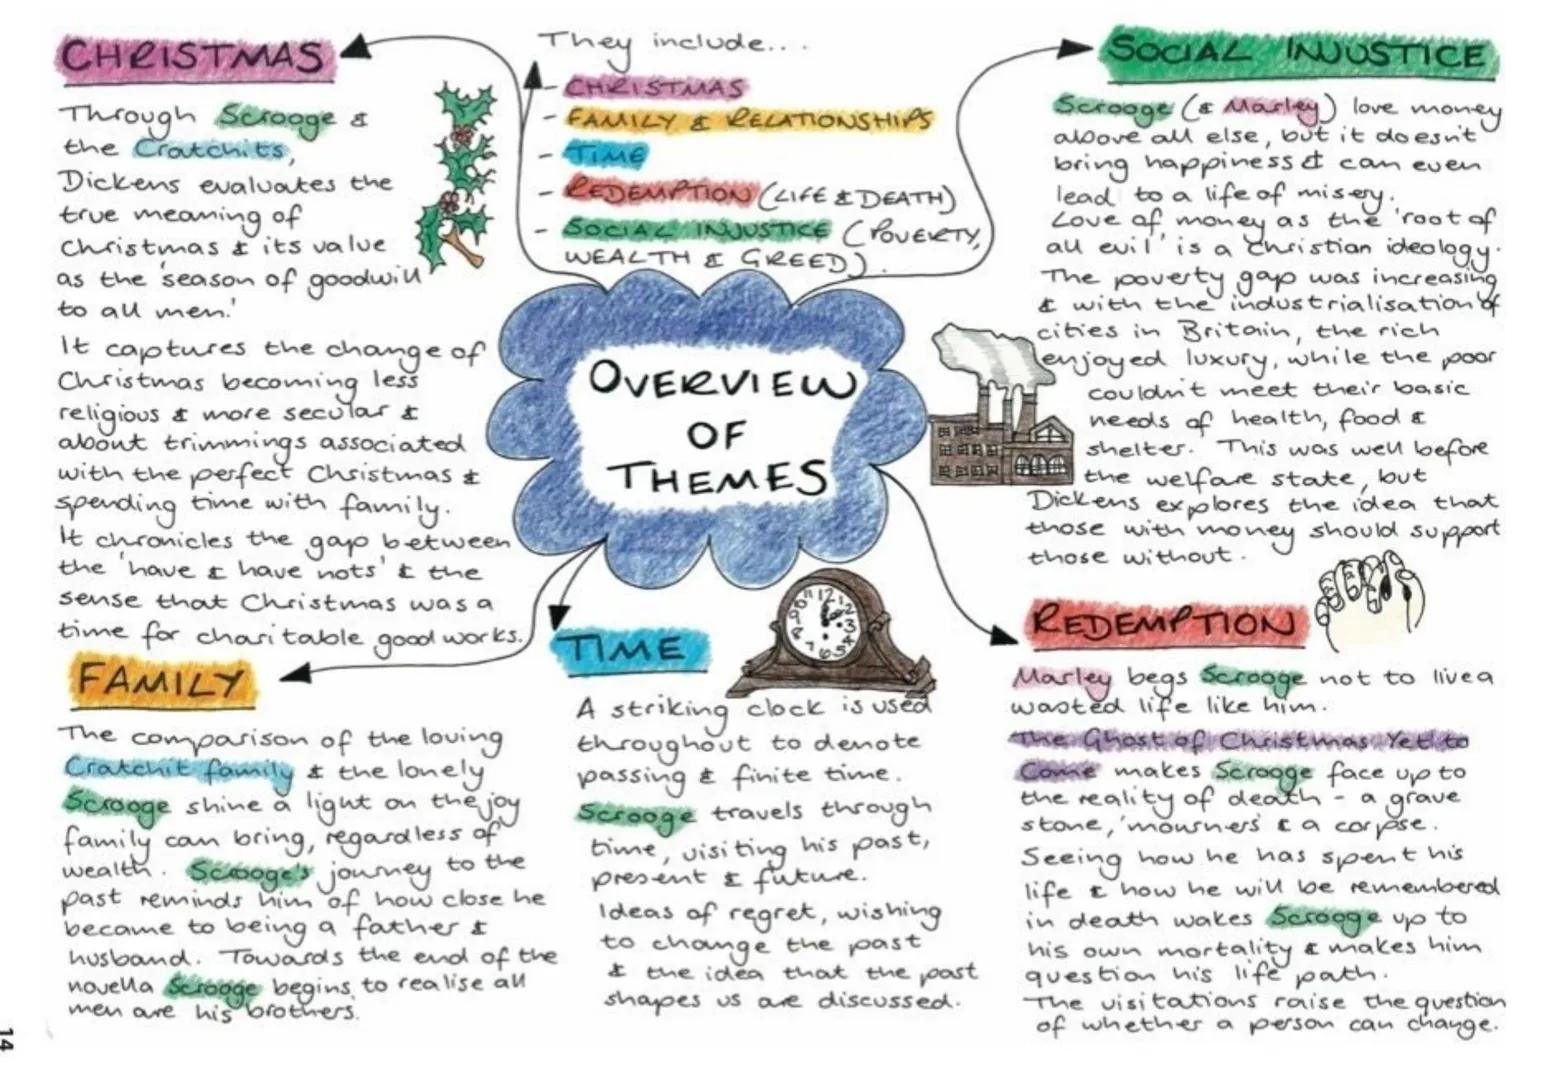 They include...
- CHRISTMAS
- FAMILY & RELATIONSHIPS
- TIME
- REDEMPTION (LIFE & DEATH)
- SOCIAL INJUSTICE (POVERTY,
WEALTH & GREED).
OVERVIEW
OF
THEMES
CHRISTMAS
Through Scrooge &
the Cratchits,
Dickens evaluates the
true meaning of
Christmas & its value
as the 'season of goodwill
to all men.'
It captures the change of
Christmas becoming less
religious & more secular &
about trimmings associated
with the perfect Christmas &
spending time with family.
It chronicles the gap between
the 'have & have nots' & the
sense that Christmas was a
time for charitable good works.
FAMILY
The comparison of the loving
Cratchit family & the lonely
Scrooge shine a light on the joy
family can bring, regardless of
wealth. Scrooge's journey to the
past reminds him of how close he
became to being a father &
husband. Towards the end of the
novella Scrooge begins to realise all
men are his brothers.
TIME
11 12 1
10 2
9 3
8 4
7 6 5
A striking clock is used
throughout to denote
passing & finite time.
Scrooge travels through
time, visiting his past,
present & future.
Ideas of regret, wishing
to change the past
& the idea that the past
shapes us are discussed.
SOCIAL INJUSTICE
Scrooge (& Marley) love money
above all else, but it doesn't
bring happiness & can even
lead to a life of misery.
Love of money as the 'root of
all evil' is a Christian ideology.
The poverty gap was increasing
& with the industrialisation of
cities in Britain, the rich
enjoyed luxury, while the poor
couldn't meet their basic
needs of health, food &
shelter. This was well before
the welfare state, but
Dickens explores the idea that
those with money should support
those without.
REDEMPTION
Marley begs Scrooge not to live a
wasted life like him.
The Ghost of Christmas Yet to
Come makes Scrooge face up to
the reality of death - a grave
stone, 'mourners' & a corpse.
Seeing how he has spent his
life & how he will be remembered
in death wakes Scrooge up to
his own mortality & makes him
question his life path.
The visitations raise the question
of whether a person can change.
14